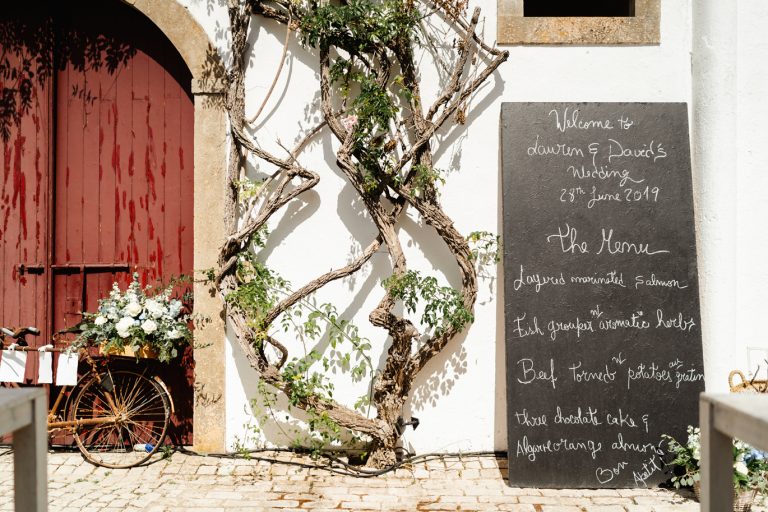 Welcome to
Lauren & David's
Wedding
28th June 2019
The Menu
Layered marinated Salmon
Fish grouper w/ aromatic herbs
Beef Tornedo w/ potatoes au gratin
three chocolate cake &
Algarve orange almond
Bon
Apetit